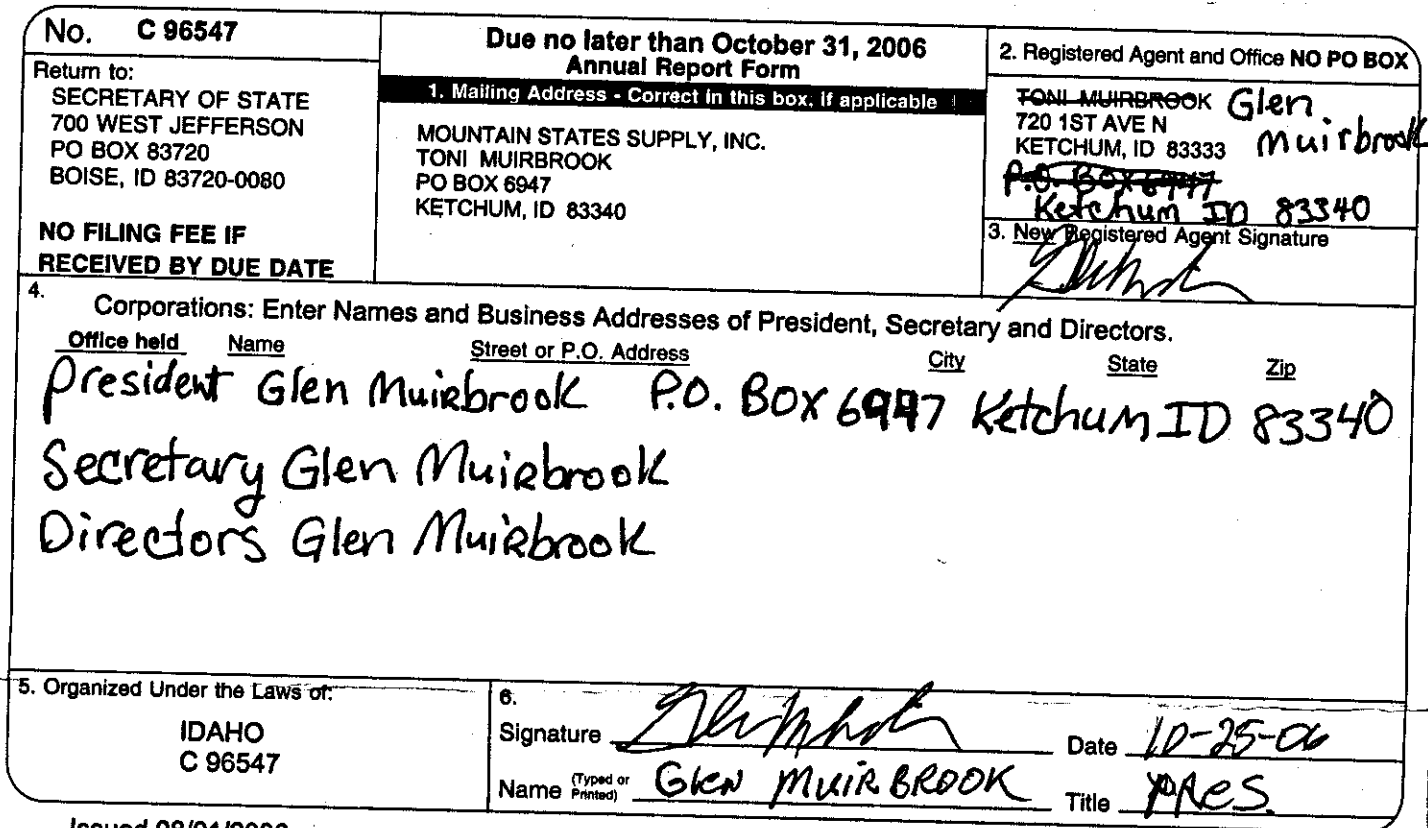 No. C 96547
Return to:
SECRETARY OF STATE
700 WEST JEFFERSON
PO BOX 83720
BOISE, ID 83720-0080
NO FILING FEE IF
RECEIVED BY DUE DATE
Due no later than October 31, 2006
Annual Report Form
1. Mailing Address - Correct in this box, if applicable
MOUNTAIN STATES SUPPLY, INC.
TONI MUIRBROOK
PO BOX 6947
KETCHUM, ID 83340
2. Registered Agent and Office NO PO BOX
TONI MUIRBROOK Glen
720 1ST AVE N Muirbrook
KETCHUM, ID 83333
P.O. BOX 6947
Ketchum ID 83340
3. New Registered Agent Signature
4.
Corporations: Enter Names and Business Addresses of President, Secretary and Directors.
Office held Name Street or P.O. Address City State Zip
President Glen Muirbrook P.O. BOX 6947 Ketchum ID 83340
Secretary Glen Muirbrook
Directors Glen Muirbrook
5. Organized Under the Laws of:
IDAHO
C 96547
6.
Signature Date 10-25-06
Name (Typed or Printed) Glen MUIRBROOK Title pres.